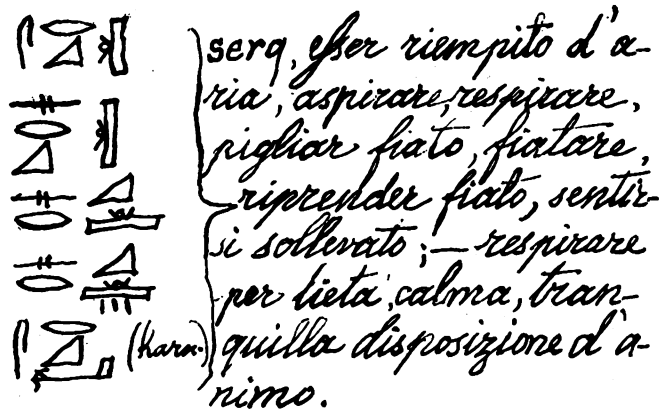 serq, esser riempito d'a-
ria, aspirare, respirare,
pigliar fiato, fiatare,
riprender fiato, sentir-
si sollevato; — respirare
per lieta, calma, tran-
(Karn.) quilla disposizione d'a-
nimo.